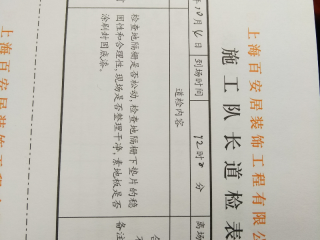 上海百安居装饰工程有限公
施工队长道检表
年10月16日 到场时间 12时0分 离场
道检内容
检查地隔栅是否松动,检查地隔栅下垫片的稳
固性和合理性;现场是否整理干净;素地板是否
涂刷封固底漆。
备注
上海百安居装饰工程